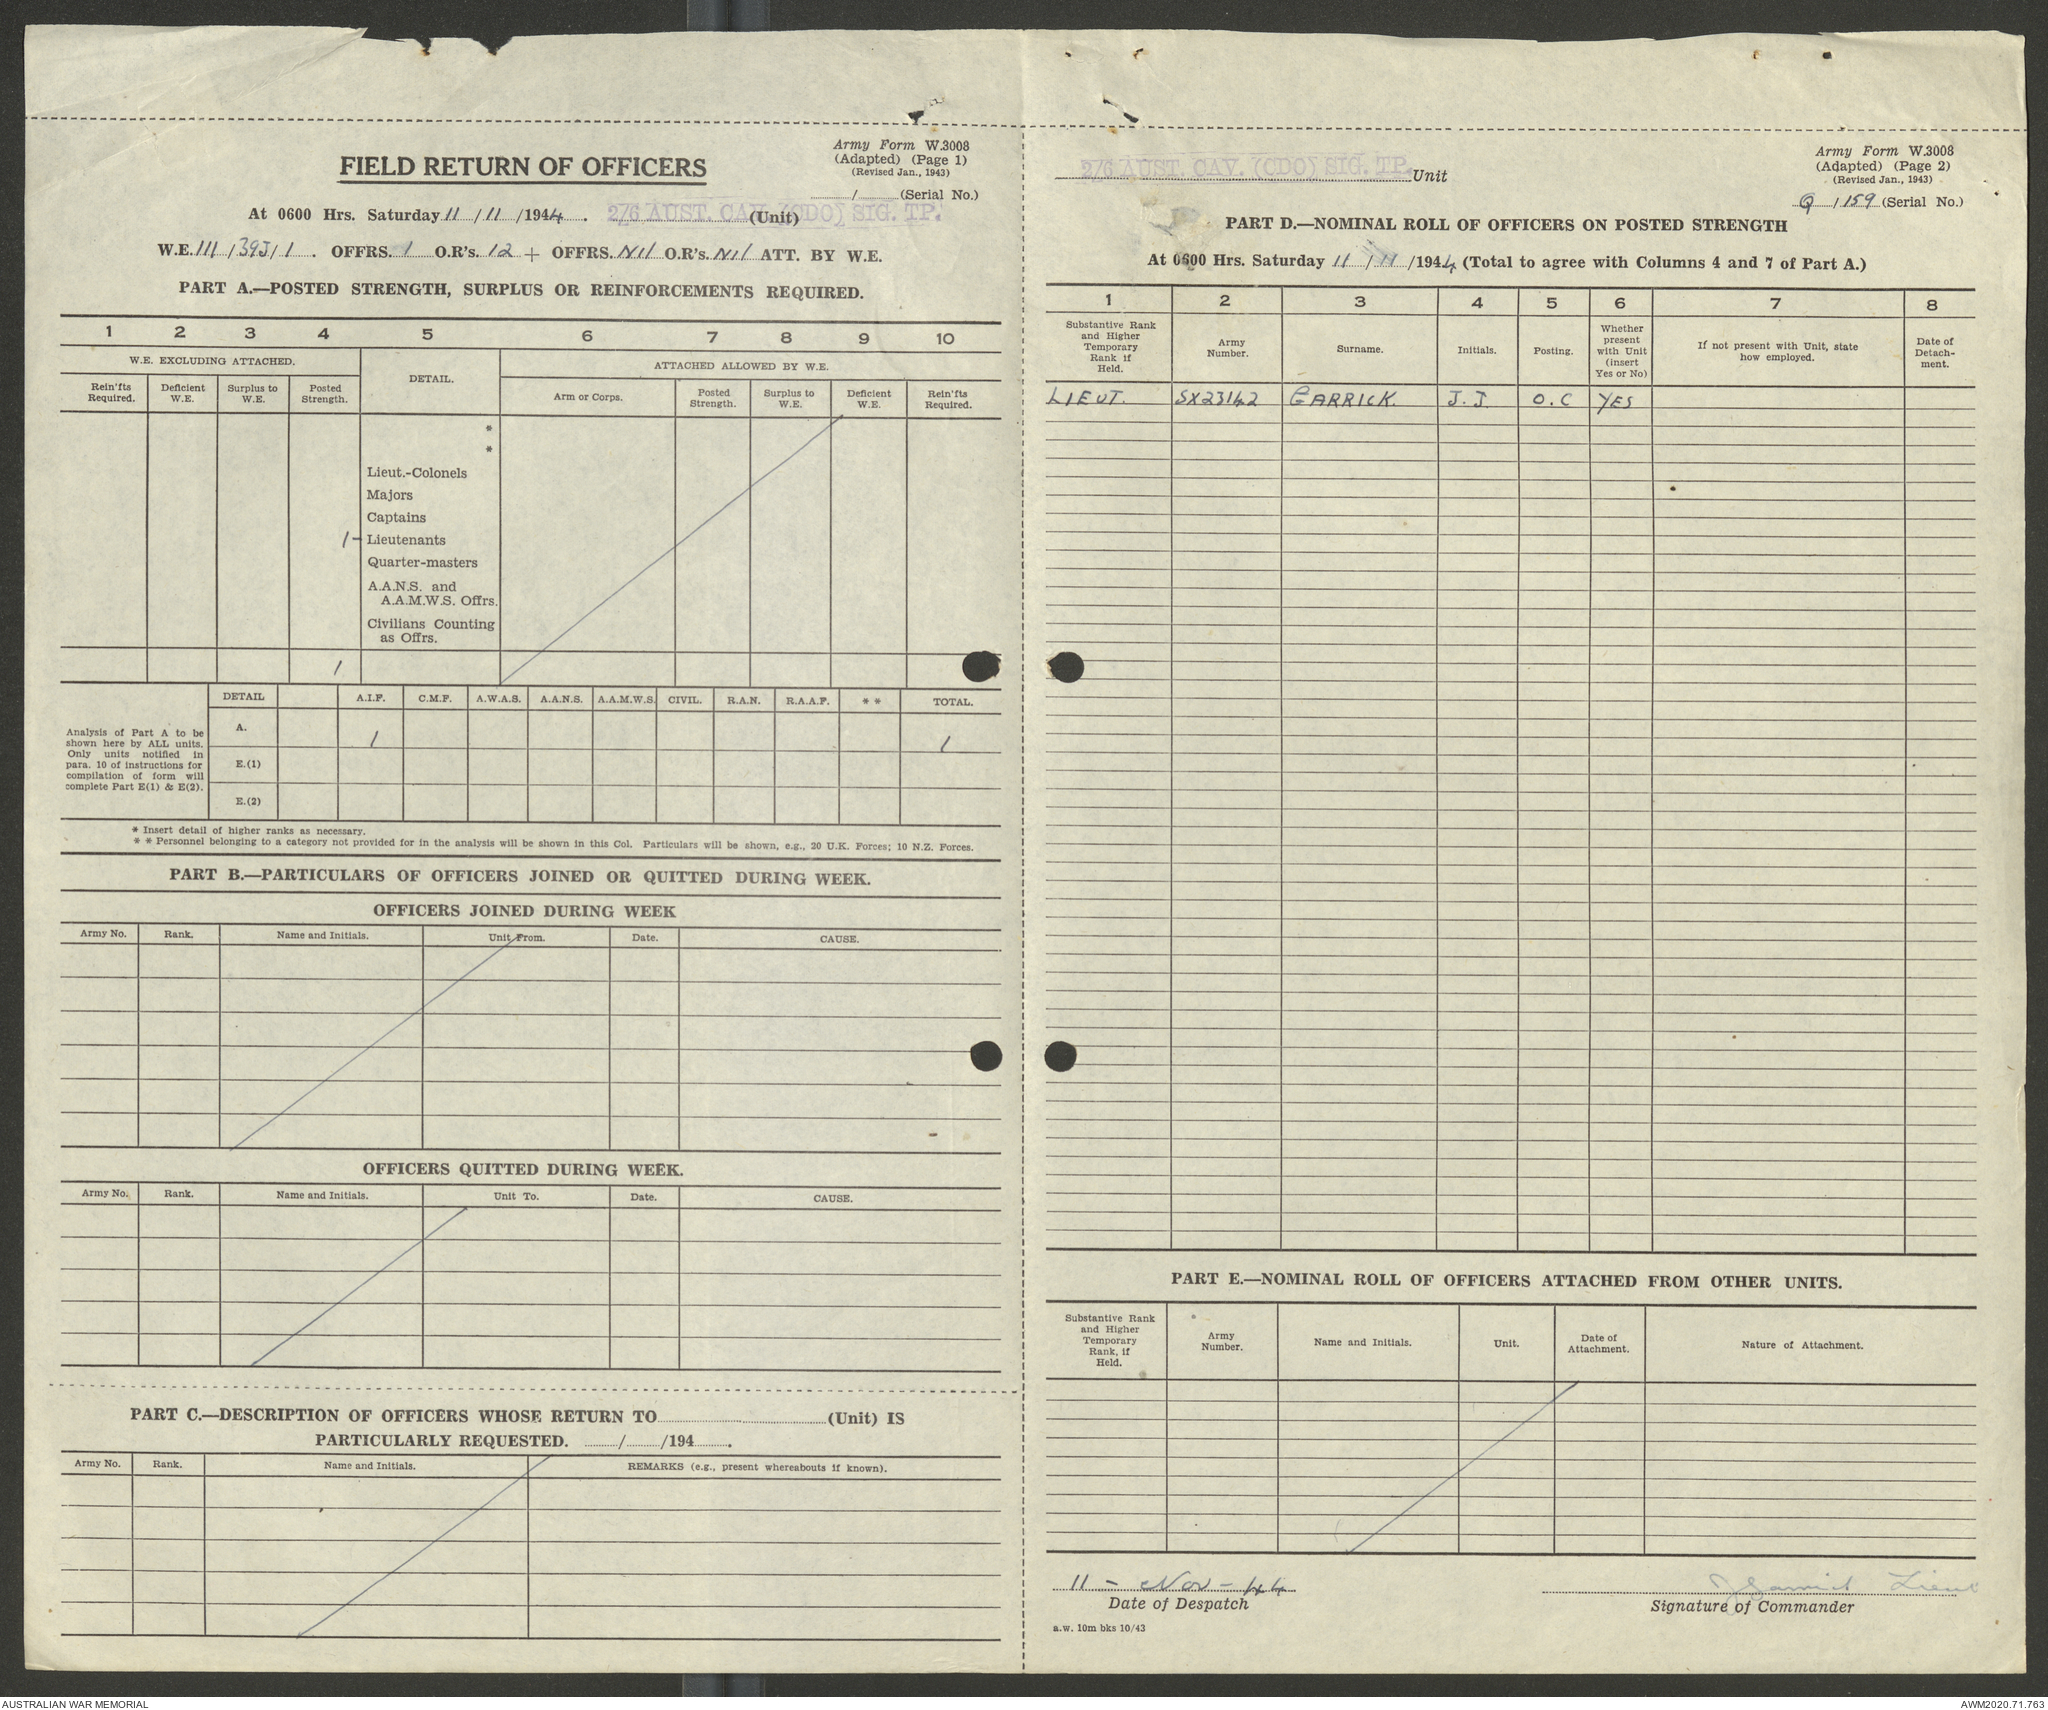 Army Form W.3008
(Adapted) (Page 1)
(Revised Jan., 1943)
FIELD RETURN OF OFFICERS
/ (Serial No.)
At 0600 Hrs. Saturday 11 / 11 / 1944 . 2/6 AUST. CAV. (CDO) SIG. TP. (Unit)
W.E. 111 / 39J / 1 . OFFRS. 1 O.R's. 12 + OFFRS. Nil O.R's. Nil ATT. BY W.E.
PART A.—POSTED STRENGTH, SURPLUS OR REINFORCEMENTS REQUIRED.
1 2 3 4 5 6 7 8 9 10
W.E. EXCLUDING ATTACHED. DETAIL. ATTACHED ALLOWED BY W.E.
Rein'fts Required. Deficient W.E. Surplus to W.E. Posted Strength. Arm or Corps. Posted Strength. Surplus to W.E. Deficient W.E. Rein'fts Required.
*
*
Lieut.-Colonels
Majors
Captains
1 - Lieutenants
Quarter-masters
A.A.N.S. and
A.A.M.W.S. Offrs.
Civilians Counting
as Offrs.
1
DETAIL A.I.F. C.M.F. A.W.A.S. A.A.N.S. A.A.M.W.S. CIVIL. R.A.N. R.A.A.F. * * TOTAL.
Analysis of Part A to be
shown here by ALL units.
Only units notified in
para. 10 of instructions for
compilation of form will
complete Part E(1) & E(2).
A. 1 1
E.(1)
E.(2)
* Insert detail of higher ranks as necessary.
* * Personnel belonging to a category not provided for in the analysis will be shown in this Col. Particulars will be shown, e.g., 20 U.K. Forces; 10 N.Z. Forces.
PART B.—PARTICULARS OF OFFICERS JOINED OR QUITTED DURING WEEK.
OFFICERS JOINED DURING WEEK
Army No. Rank. Name and Initials. Unit From. Date. CAUSE.
OFFICERS QUITTED DURING WEEK.
Army No. Rank. Name and Initials. Unit To. Date. CAUSE.
PART C.—DESCRIPTION OF OFFICERS WHOSE RETURN TO (Unit) IS
PARTICULARLY REQUESTED. / /194 .
Army No. Rank. Name and Initials. REMARKS (e.g., present whereabouts if known).
Army Form W.3008
(Adapted) (Page 2)
(Revised Jan., 1943)
2/6 AUST. CAV. (CDO) SIG. TP. Unit
Q / 159 (Serial No.)
PART D.—NOMINAL ROLL OF OFFICERS ON POSTED STRENGTH
At 0600 Hrs. Saturday 11 / 11 /1944 (Total to agree with Columns 4 and 7 of Part A.)
1 2 3 4 5 6 7 8
Substantive Rank and Higher Temporary Rank if Held. Army Number. Surname. Initials. Posting. Whether present with Unit (insert Yes or No) If not present with Unit, state how employed. Date of Detach-ment.
LIEUT. SX23142 GARRICK. J.J. O.C YES
PART E.—NOMINAL ROLL OF OFFICERS ATTACHED FROM OTHER UNITS.
Substantive Rank and Higher Temporary Rank, if Held. Army Number. Name and Initials. Unit. Date of Attachment. Nature of Attachment.
11 - Nov - 44
Date of Despatch
JJGarrick Lieut
Signature of Commander
a.w. 10m bks 10/43
AUSTRALIAN WAR MEMORIAL
AWM2020.71.763